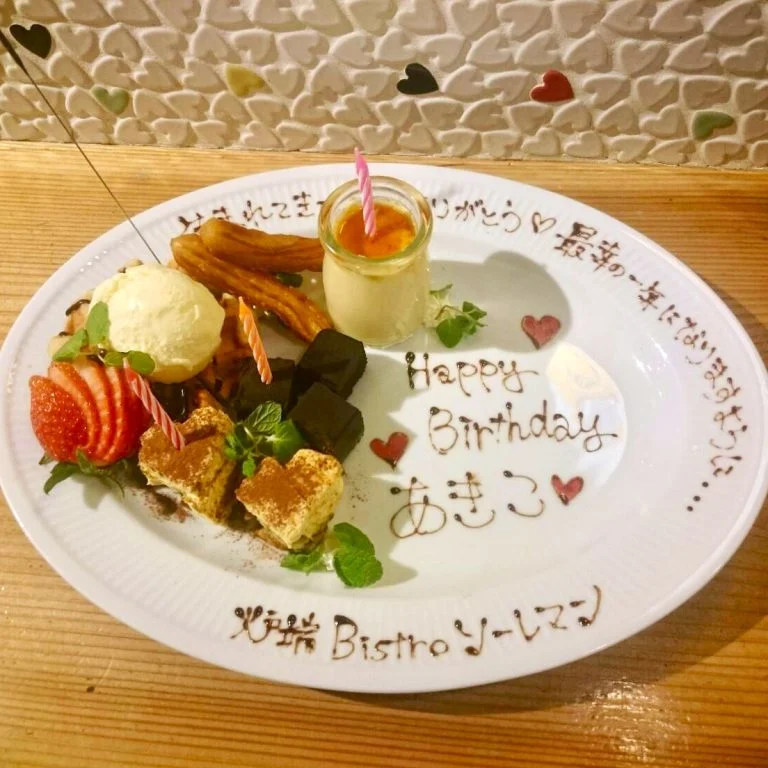 生まれてき
りがとう♡
最幸の一年になりますように…
Happy
Birthday
あきこ
炉端 Bistro ソーレマン